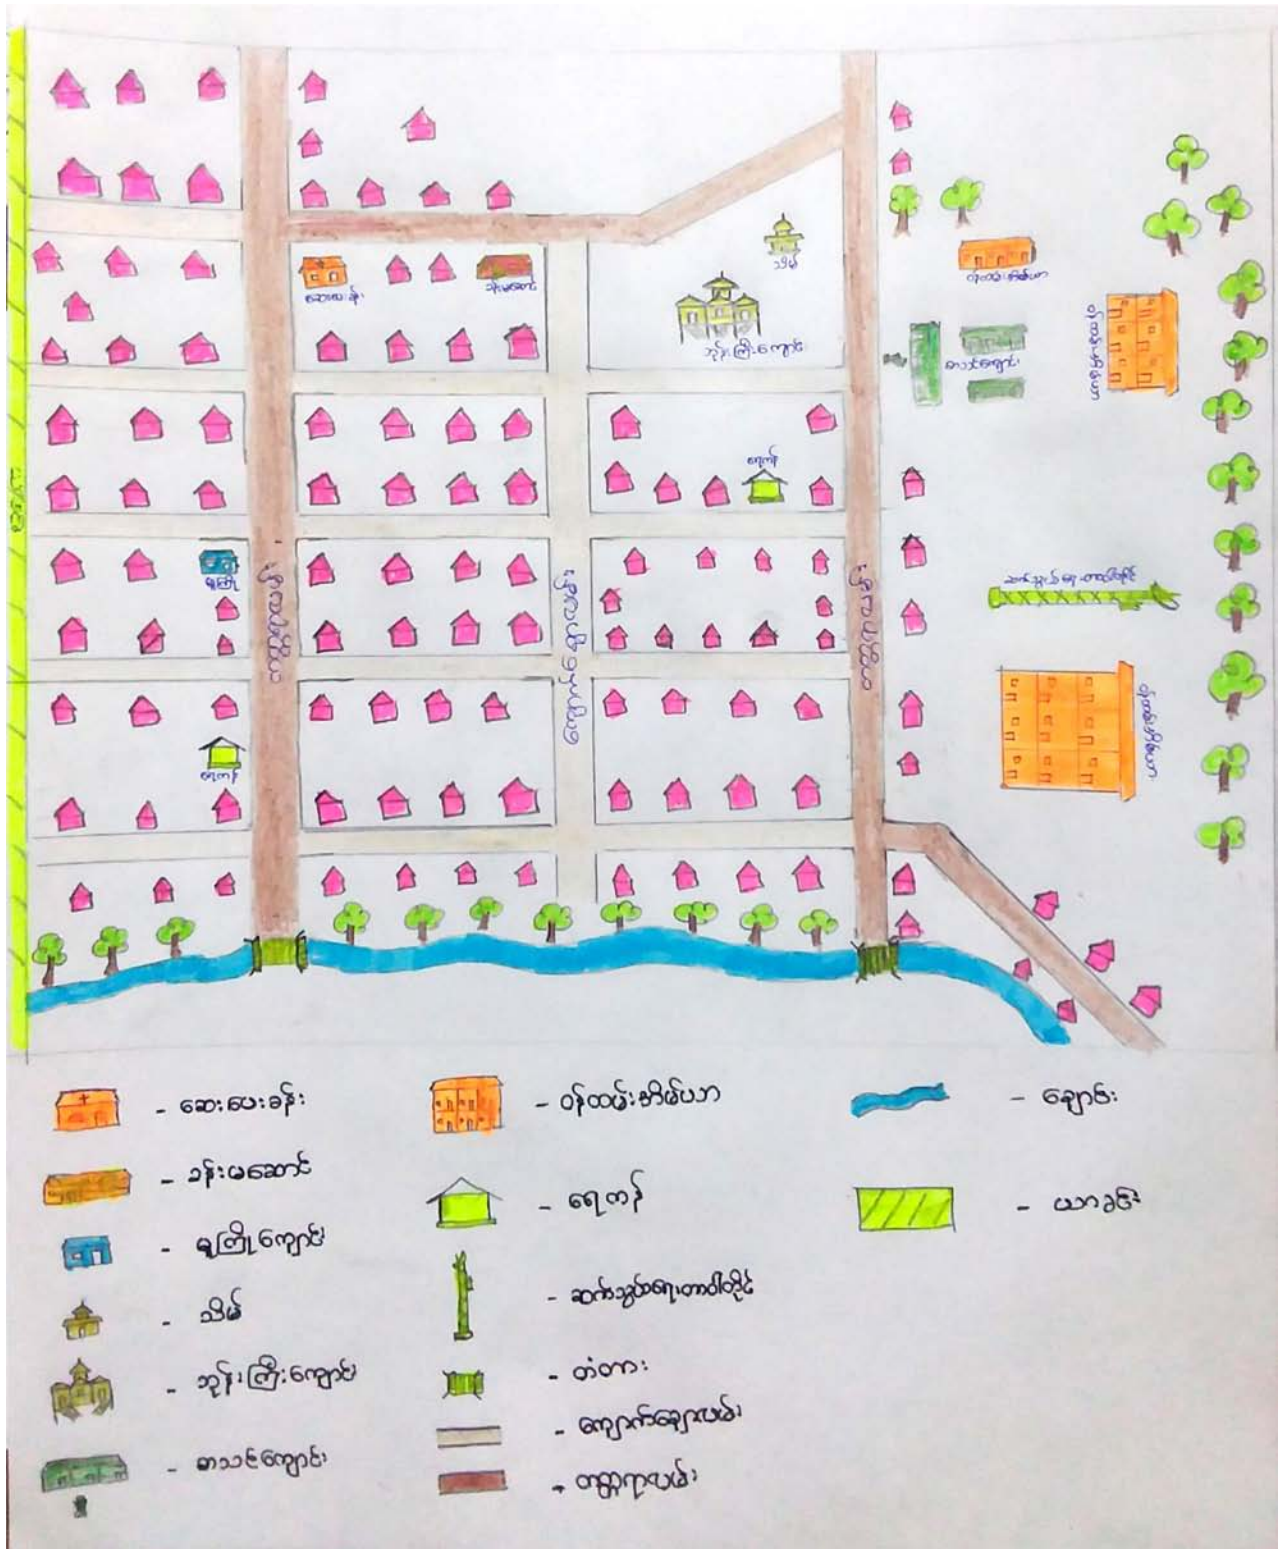 သိမ်
ဆေးပေးခန်း
ခန်းမဆောင်
ဝန်ထမ်းအိမ်ယာ
ဘုန်းကြီးကျောင်း
စာသင်ကျောင်း
ဝန်ထမ်းအိမ်ယာ
ရေကန်
ယာခင်း
မူကြို
ကတ္တရာလမ်း
ကျောက်ချောလမ်း
ကတ္တရာလမ်း
ဆက်သွယ်ရေးတာဝါတိုင်
ဝန်ထမ်းအိမ်ယာ
ရေကန်
- ဆေးပေးခန်း
- ခန်းမဆောင်
- မူကြိုကျောင်း
- သိမ်
- ဘုန်းကြီးကျောင်း
- စာသင်ကျောင်း
- ဝန်ထမ်းအိမ်ယာ
- ရေကန်
- ဆက်သွယ်ရေးတာဝါတိုင်
- တံတား
- ကျောက်ချောလမ်း
- ကတ္တရာလမ်း
- ချောင်း
- ယာခင်း